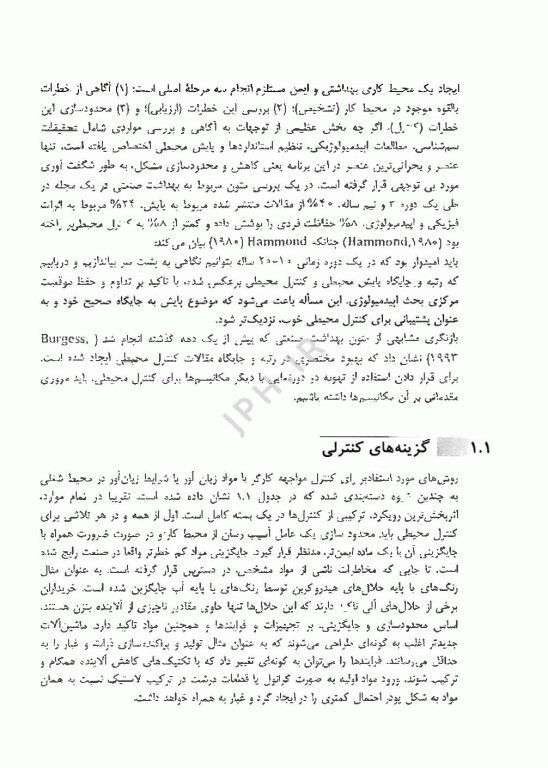 ایجاد یک محیط کاری بهداشتی و ایمن مستلزم انجام سه مرحلهٔ اصلی است: (۱) آگاهی از خطرات
بالقوه موجود در محیط کار (تشخیص)؛ (۲) بررسی این خطرات (ارزیابی)؛ و (۳) محدودسازی این
خطرات (کنترل). اگر چه بخش عظیمی از توجهات به آگاهی و بررسی مواردی شامل تحقیقات
سم‌شناسی، مطالعات اپیدمیولوژیکی، تنظیم استانداردها و پایش محیطی اختصاص یافته است، تنها
عنصر و بحرانی‌ترین عنصر در این برنامه یعنی کاهش و محدودسازی مشکل، به طور شگفت آوری
مورد بی توجهی قرار گرفته است. در یک بررسی متون مربوط به بهداشت صنعتی در یک مجله در
طی یک دوره ۳ و نیم ساله، ۴۰% از مقالات منتشر شده مربوط به پایش، ۲۴% مربوط به اثرات
فیزیکی و اپیدمیولوژی، ۸% حفاظت فردی را پوشش داده و کمتر از ۸% به کنترل محیطی پرداخته
بود (Hammond,۱۹۸۰) چنانکه Hammond (۱۹۸۰) بیان می‌کند:
باید امیدوار بود که در یک دوره زمانی ۱۰-۲۰ ساله بتوانیم نگاهی به پشت سر بیاندازیم و دریابیم
که رتبه و جایگاه پایش محیطی و کنترل محیطی برعکس شده، با تاکید بر تداوم و حفظ موقعیت
مرکزی بحث اپیدمیولوژی. این مسأله باعث می‌شود که موضوع پایش به جایگاه صحیح خود و به
عنوان پشتیبانی برای کنترل محیطی خوب، نزدیک‌تر شود.
بازنگری مشابهی از متون بهداشت صنعتی که بیش از یک دهه گذشته انجام شد (Burgess,
۱۹۹۳) نشان داد که بهبود مختصری در رتبه و جایگاه مقالات کنترل محیطی ایجاد شده است.
برای قرار دادن استفاده از تهویه در دورنمایی با دیگر مکانیسم‌ها برای کنترل محیطی، باید مروری
مقدماتی بر آن مکانیسم‌ها داشته باشیم.
۱.۱ گزینه‌های کنترلی
روش‌های مورد استفاده برای کنترل مواجهه کارگر با مواد زیان آور یا شرایط زیان‌آور در محیط شغلی
به چندین گروه دسته‌بندی شده که در جدول ۱.۱ نشان داده شده است. تقریبا در تمام موارد،
اثربخش‌ترین رویکرد، ترکیبی از کنترل‌ها در یک بسته کامل است. اول از همه و در هر تلاشی برای
کنترل محیطی باید محدود سازی یک عامل آسیب رسان از محیط کار و در صورت ضرورت همراه با
جایگزینی آن با یک ماده ایمن‌تر، مدنظر قرار گیرد. جایگزینی مواد کم خطرتر واقعا در صنعت رایج شده
است، تا جایی که مخاطرات ناشی از مواد مشخص، در دسترس قرار گرفته است. به عنوان مثال
رنگ‌های با پایه حلال‌های هیدروکربن توسط رنگ‌های با پایه آب جایگزین شده است. خریداران
برخی از حلال‌های آلی تاکید دارند که این حلال‌ها تنها حاوی مقادیر ناچیزی از آلاینده بنزن هستند.
اساس محدودسازی و جایگزینی، بر تجهیزات و فرایندها و همچنین مواد تاکید دارد. ماشین‌آلات
جدیدتر اغلب به گونه‌ای طراحی می‌شوند که به عنوان مثال تولید و پراکنده‌سازی ذرات و غبار را به
حداقل می‌رسانند. فرایندها را می‌توان به گونه‌ای تغییر داد که با تکنیک‌های کاهش آلاینده همگام و
ترکیب شوند. ورود مواد اولیه به صورت گرانول یا قطعات درشت در ترکیب لاستیک نسبت به همان
مواد به شکل پودر احتمال کمتری را در ایجاد گرد و غبار به همراه خواهد داشت.
JPH.IR